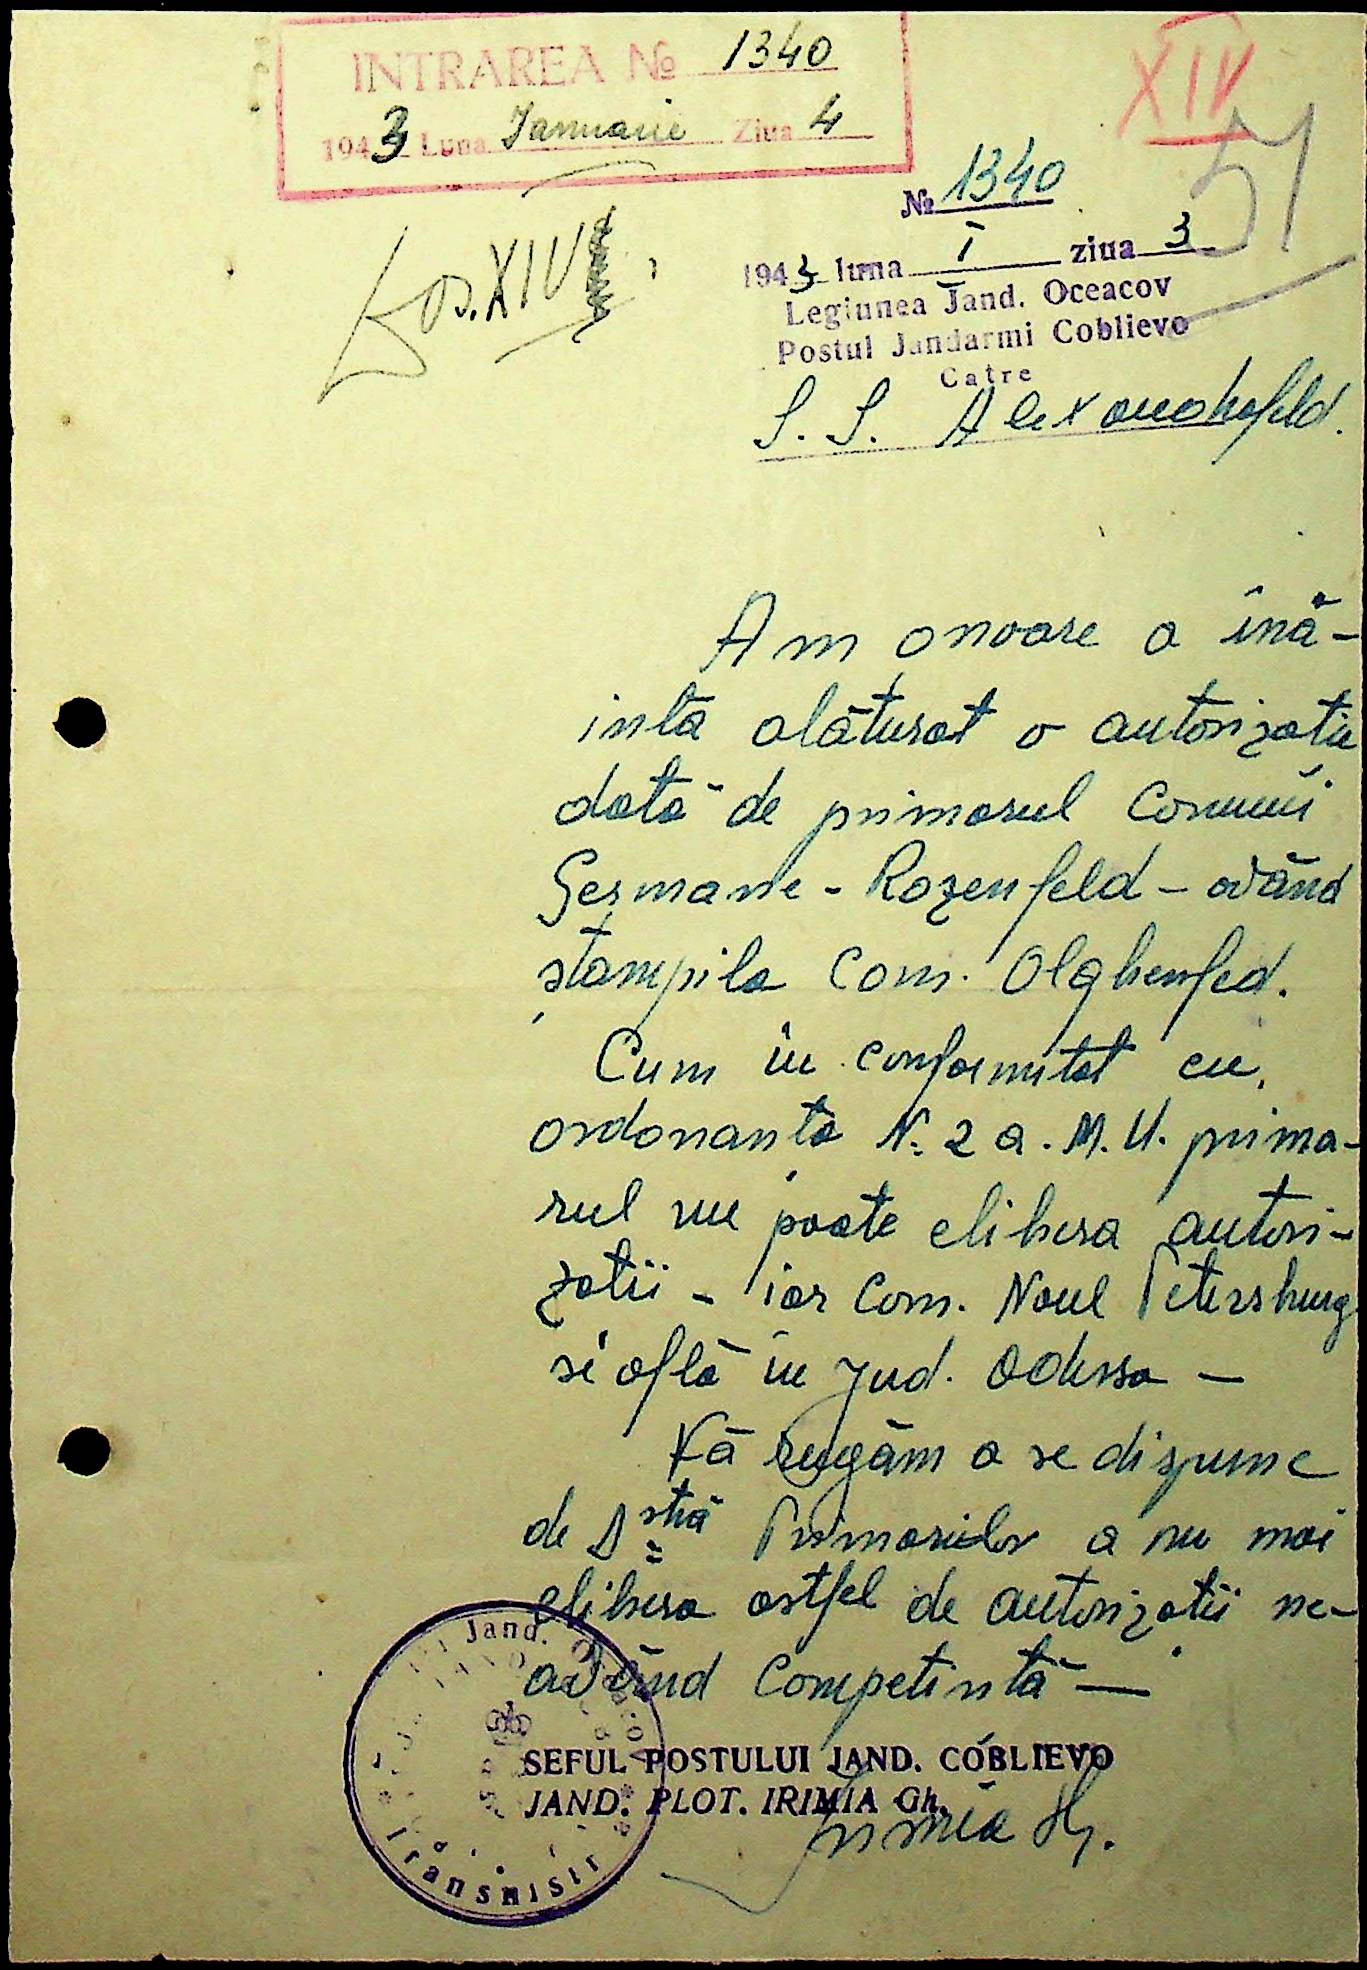 INTRAREA № 1340
1943 Luna Ianuarie Ziua 4
XIV
51
№ 1340
1943 luna I ziua 3
Legiunea Jand. Oceacov
Postul Jandarmi Coblievo
Catre
S. S. Alexandrofeld.
Dos. XIV
Am onoare a înă-
inta alăturat o autorizatie
dată de primarul Comunii
Germane - Rozenfeld - având
ștampila Com. Olghenfed.
Cum în conformitat cu
ordonanța N: 2 a. M. U. prima-
rul nu poate elibera autori-
zatii - iar Com. Noul Petersburg
se află în Jud. Odessa -
Vă rugăm a se dispune
de Dstră Primarilor a nu mai
elibera astfel de autorizatii ne-
având Competintă -
SEFUL POSTULUI JAND. COBLIEVO
JAND. PLOT. IRIMIA Gh.
Irimia Gh.
Jand.
Transnistr